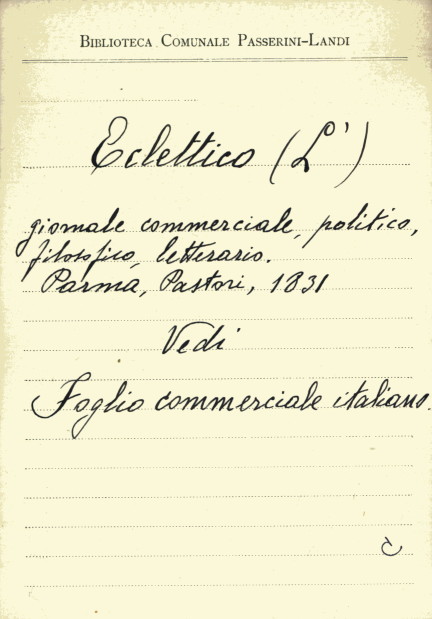 BIBLIOTECA COMUNALE PASSERINI-LANDI
Eclettico (L')
giornale commerciale, politico,
filosofico, letterario.
Parma, Pastori, 1831
Vedi
Foglio commerciale italiano.